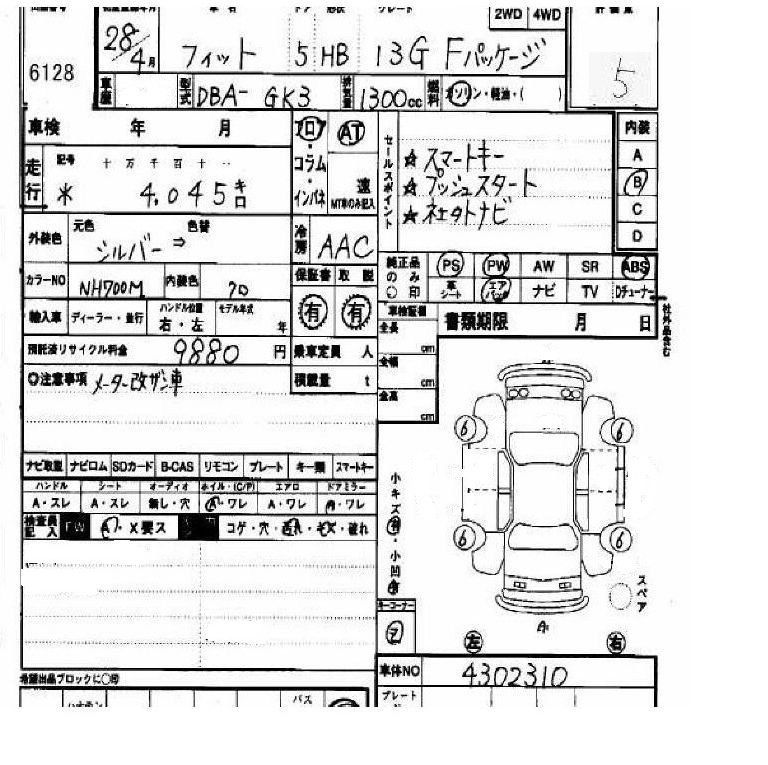 2WD 4WD
6128
28/4月 フィット 5 HB 13G Fパッケージ
5
車歴 型式 DBA- GK3 排気量 1300cc 燃料 ガソリン・軽油・( )
車検 年 月
フロア・コラム・インパネ
AT
速
MT車のみ記入
セールスポイント
☆ スマートキー
☆ プッシュスタート
☆ ネットナビ
内装
A
B
C
D
走行 記号 十 万 千 百 十
※ 4,045 キロ
外装色 元色 シルバー ⇒ 色替
冷房 AAC
カラーNO NH700M 内装色 70
保証書 取説
有 有
純正品のみ○印 PS PW AW SR ABS
革シート エアバック ナビ TV Dチューナー
社外品含む
輸入車 ディーラー・並行 ハンドル位置 右・左 モデル年式 年
車検証欄
全長 cm
全幅 cm
全高 cm
書類期限 月 日
預託済リサイクル料金 9880 円
乗車定員 人
積載量 t
◎注意事項 メーター改ザン車
ナビ取説 ナビロム SDカード B-CAS リモコン プレート キー類 スマートキー
ハンドル シート オーディオ ホイル・(C/P) エアロ ドアミラー
A・スレ A・スレ 無し・穴 A・ワレ A・ワレ A・ワレ
検査員記入 FW A・X要ス コゲ・穴・汚れ・キズ・破れ
小キズ有・小凹有
6 6
6 6
スペア
A
左 右
キーコーナー
車体NO 4302310
希望出品ブロックに○印
プレート
バス